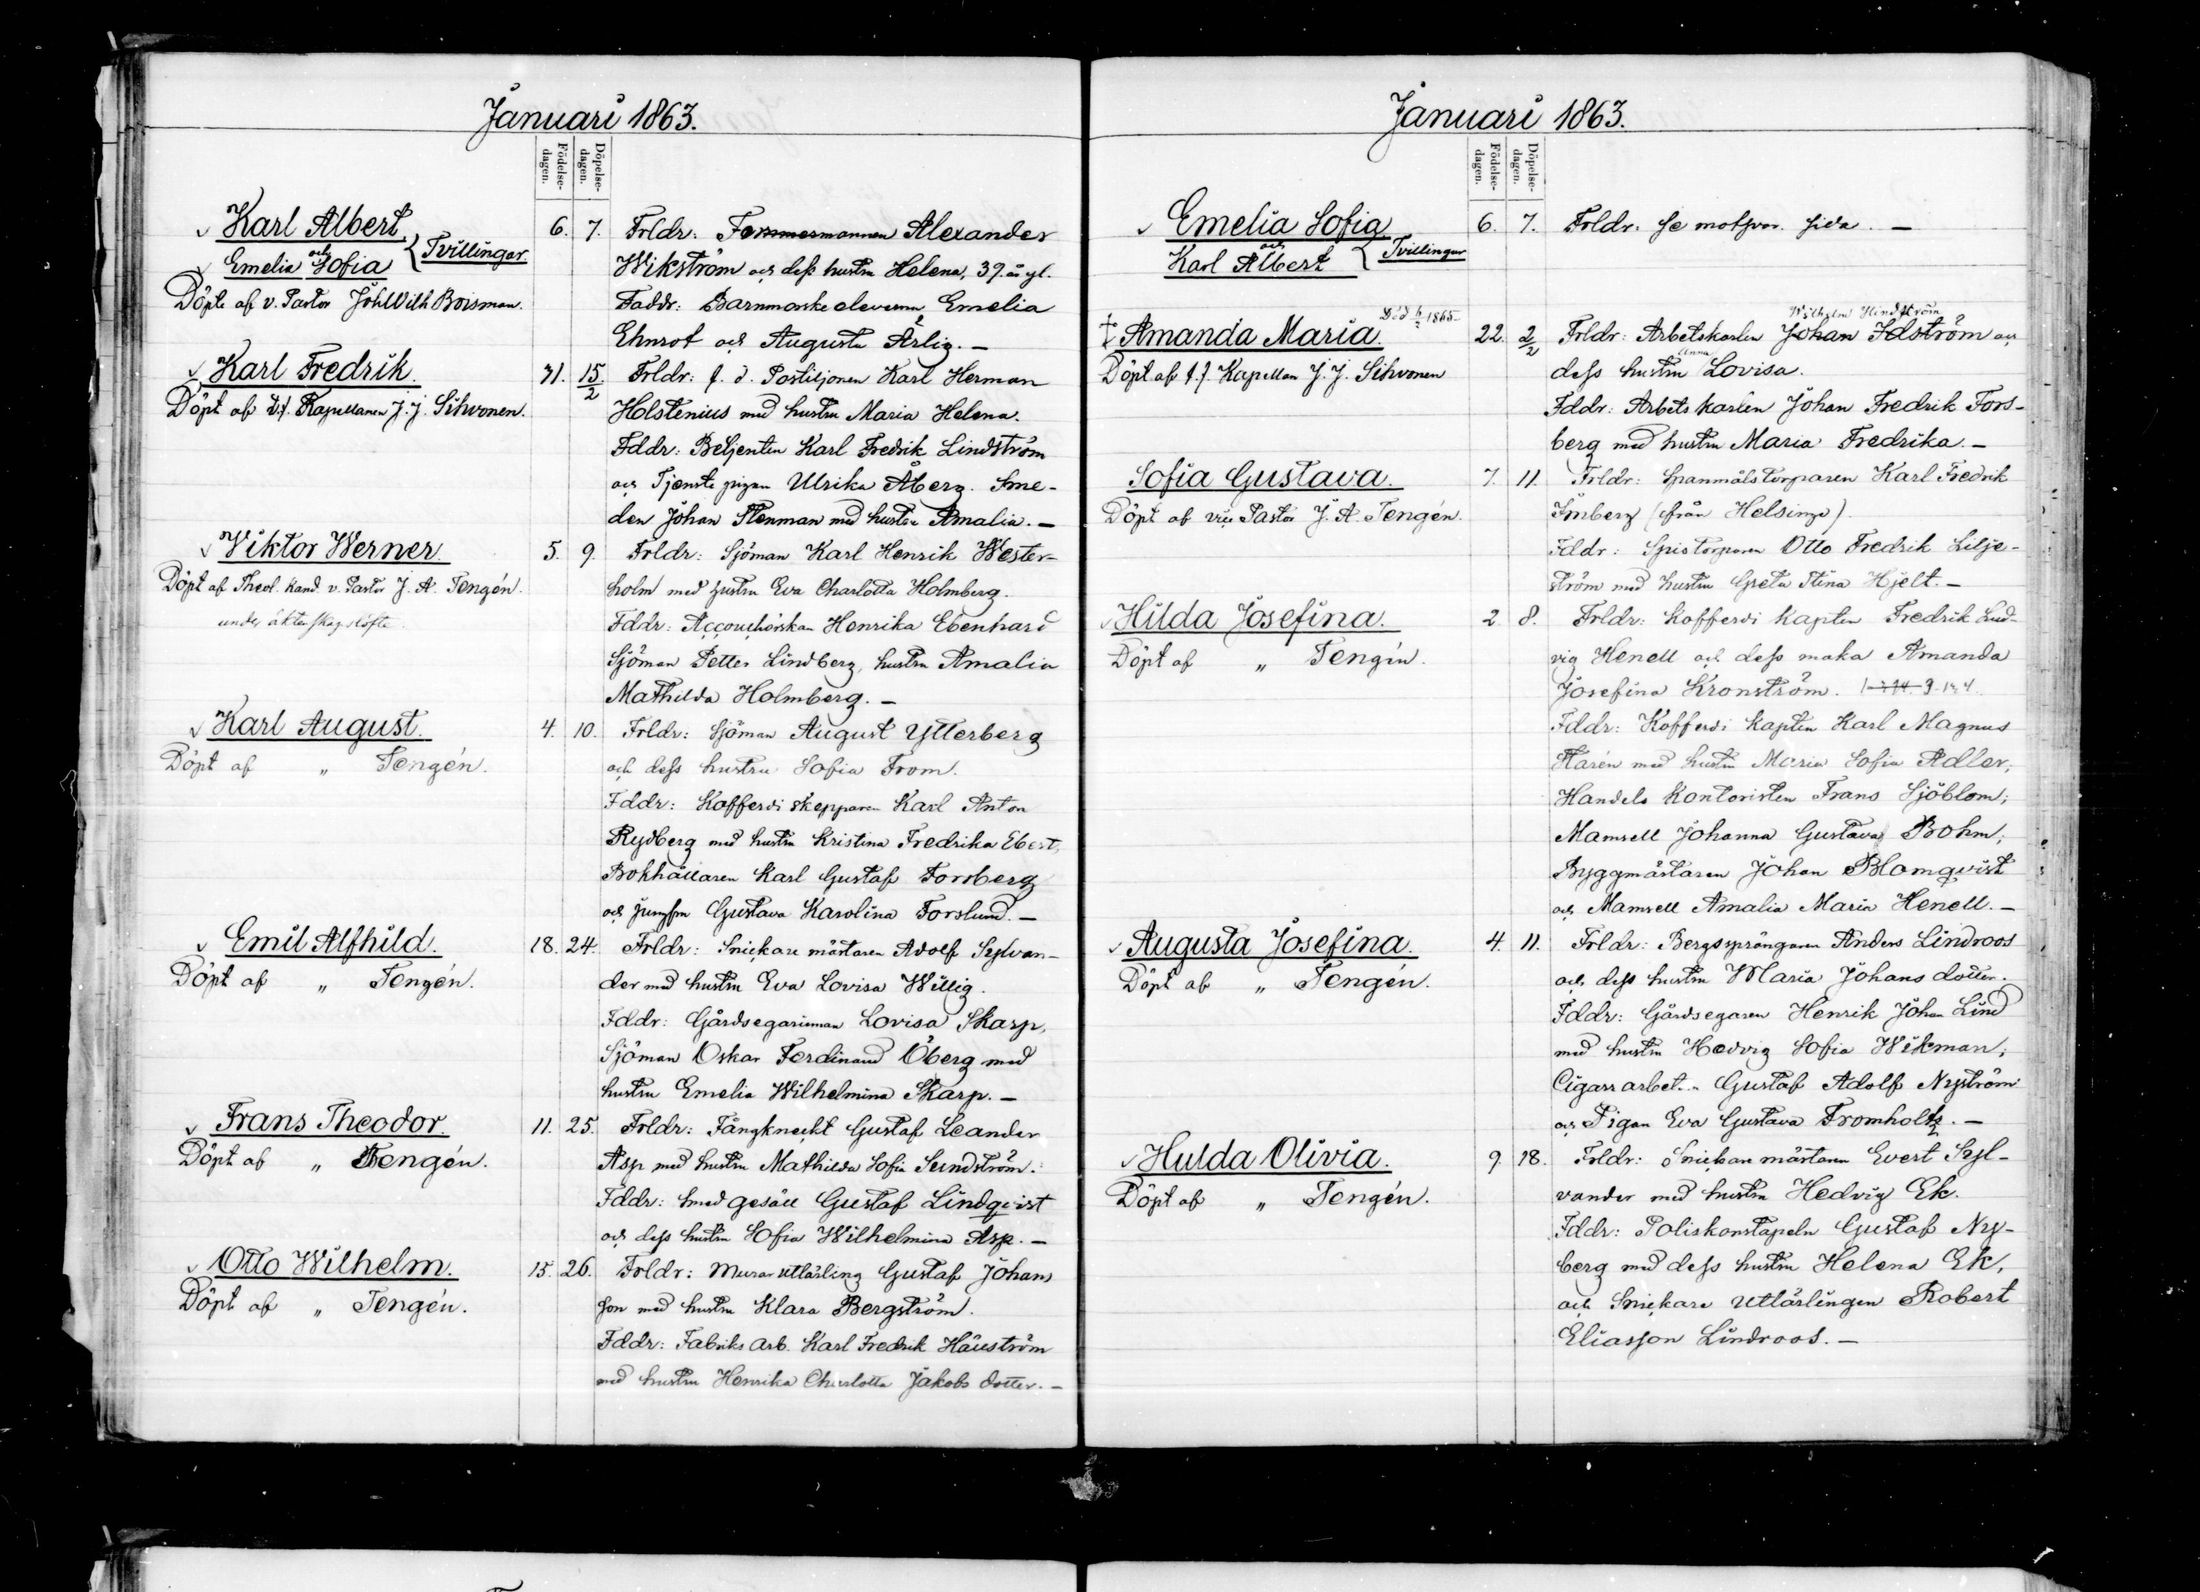 Januari 1863.
Födelse-dagen.
Döpelse-dagen.
Karl Albert
och
Emelia Sofia
Tvillingar.
Döpte af v. Pastor Joh Wilh Boisman.
6. 7.
Frldr: Timmermannen Alexander
Wikström och dess hustru Helena, 39 år gl.
Faddr: Barnmorske eleverna Emelia
Ehnrot och Augusta Ärlig. —
Karl Fredrik.
Döpt af t.f. Kapellanen J. J. Sihvonen.
31. 15/2
Frldr: f. d. Postiljonen Karl Herman
Holstenius med hustru Maria Helena.
Fddr: Betjenten Karl Fredrik Lindström
och Tjenste pigan Ulrika Åberg. Sme-
den Johan Stenman med hustru Amalia. —
Viktor Werner.
Döpt af Theol. kand. v. Pastor J. A. Tengén.
under äktenskapslöfte
5. 9.
Frldr: Sjöman Karl Henrik Wester-
holm med hustru Eva Charlotta Holmberg.
Fddr: Accouchörskan Henrika Ebenhard
Sjöman Petter Lindberg, hustru Amalia
Mathilda Holmberg. —
Karl August.
Döpt af „ Tengén.
4. 10.
Frldr: Sjöman August Ytterberg
och dess hustru Sofia From.
Fddr: Kofferdi skepparen Karl Anton
Rydberg med hustru Kristina Fredrika Ebert,
Bokhållaren Karl Gustaf Forsberg
och jungfru Gustava Karolina Forslund. —
Emil Alfhild.
Döpt af „ Tengén.
18. 24.
Frldr: Snickare mästaren Adolf Sylvan-
der med hustru Eva Lovisa Willig.
Fddr: Gårdsegarinnan Lovisa Skarp,
Sjöman Oskar Ferdinand Öberg med
hustru Emelia Wilhelmina Skarp. —
Frans Theodor.
Döpt af „ Tengén.
11. 25.
Frldr: Fångknecht Gustaf Leander
Asp med hustru Mathilda Sofia Sundström.
Fddr: Smed gesäll Gustaf Lindqvist
och dess hustru Sofia Wilhelmina Asp. —
Otto Wilhelm.
Döpt af „ Tengén.
15. 26.
Frldr: Murar utlärling Gustaf Johans
son med hustru Klara Bergström.
Fddr: Fabriks Arb. Karl Fredrik Hällström
med hustru Henrika Charlotta Jakobs dotter. —
Januari 1863.
Födelse-dagen.
Döpelse-dagen.
Emelia Sofia
och
Karl Albert
Tvillingar
6. 7.
Frldr: se motsvar. sida. —
Död 6/2 1865
Amanda Maria.
Döpt af t.f. Kapellan J. J. Sihvonen
22. 2/2
Wilhelm Hindström
Frldr: Arbetskarlen Johan Idström och
Anna
dess hustru Lovisa.
Fddr: Arbets karlen Johan Fredrik Fors-
berg med hustru Maria Fredrika. —
Sofia Gustava.
Döpt af vice Pastor J. A. Tengén.
7. 11.
Frldr: Spanmålstorparen Karl Fredrik
Imberg (från Helsinge).
Fddr: Spistorparen Otto Fredrik Lilje-
ström med hustru Greta Stina Hjelt. —
Hilda Josefina.
Döpt af „ Tengén.
2. 8.
Frldr: Kofferdi Kapten Fredrik Lud-
vig Henell och dess maka Amanda
Josefina Kronström.
Fddr: Kofferdi kapten Karl Magnus
Harén med hustru Maria Sofia Adler,
Handels Kontoristen Frans Sjöblom;
Mamsell Johanna Gustava Bohm;
Byggmästaren Johan Blomqvist
och Mamsell Amalia Maria Henell. —
Augusta Josefina.
Döpt af „ Tengén.
4. 11.
Frldr: Bergssprängaren Anders Lindroos
och dess hustru Maria Johans dotter.
Fddr: Gårdsegaren Henrik Johan Lind
med hustru Hedvig Sofia Wikman;
Cigarrarbet. Gustaf Adolf Nyström
och Pigan Eva Gustava Fromholtz. —
Hulda Olivia.
Döpt af „ Tengén.
9. 18.
Frldr: Snickare mästaren Evert Syl-
vander med hustru Hedvig Ek.
Fddr: Poliskonstapeln Gustaf Ny-
berg med dess hustru Helena Ek,
och Snickare utlärlingen Robert
Eliasson Lindroos. —